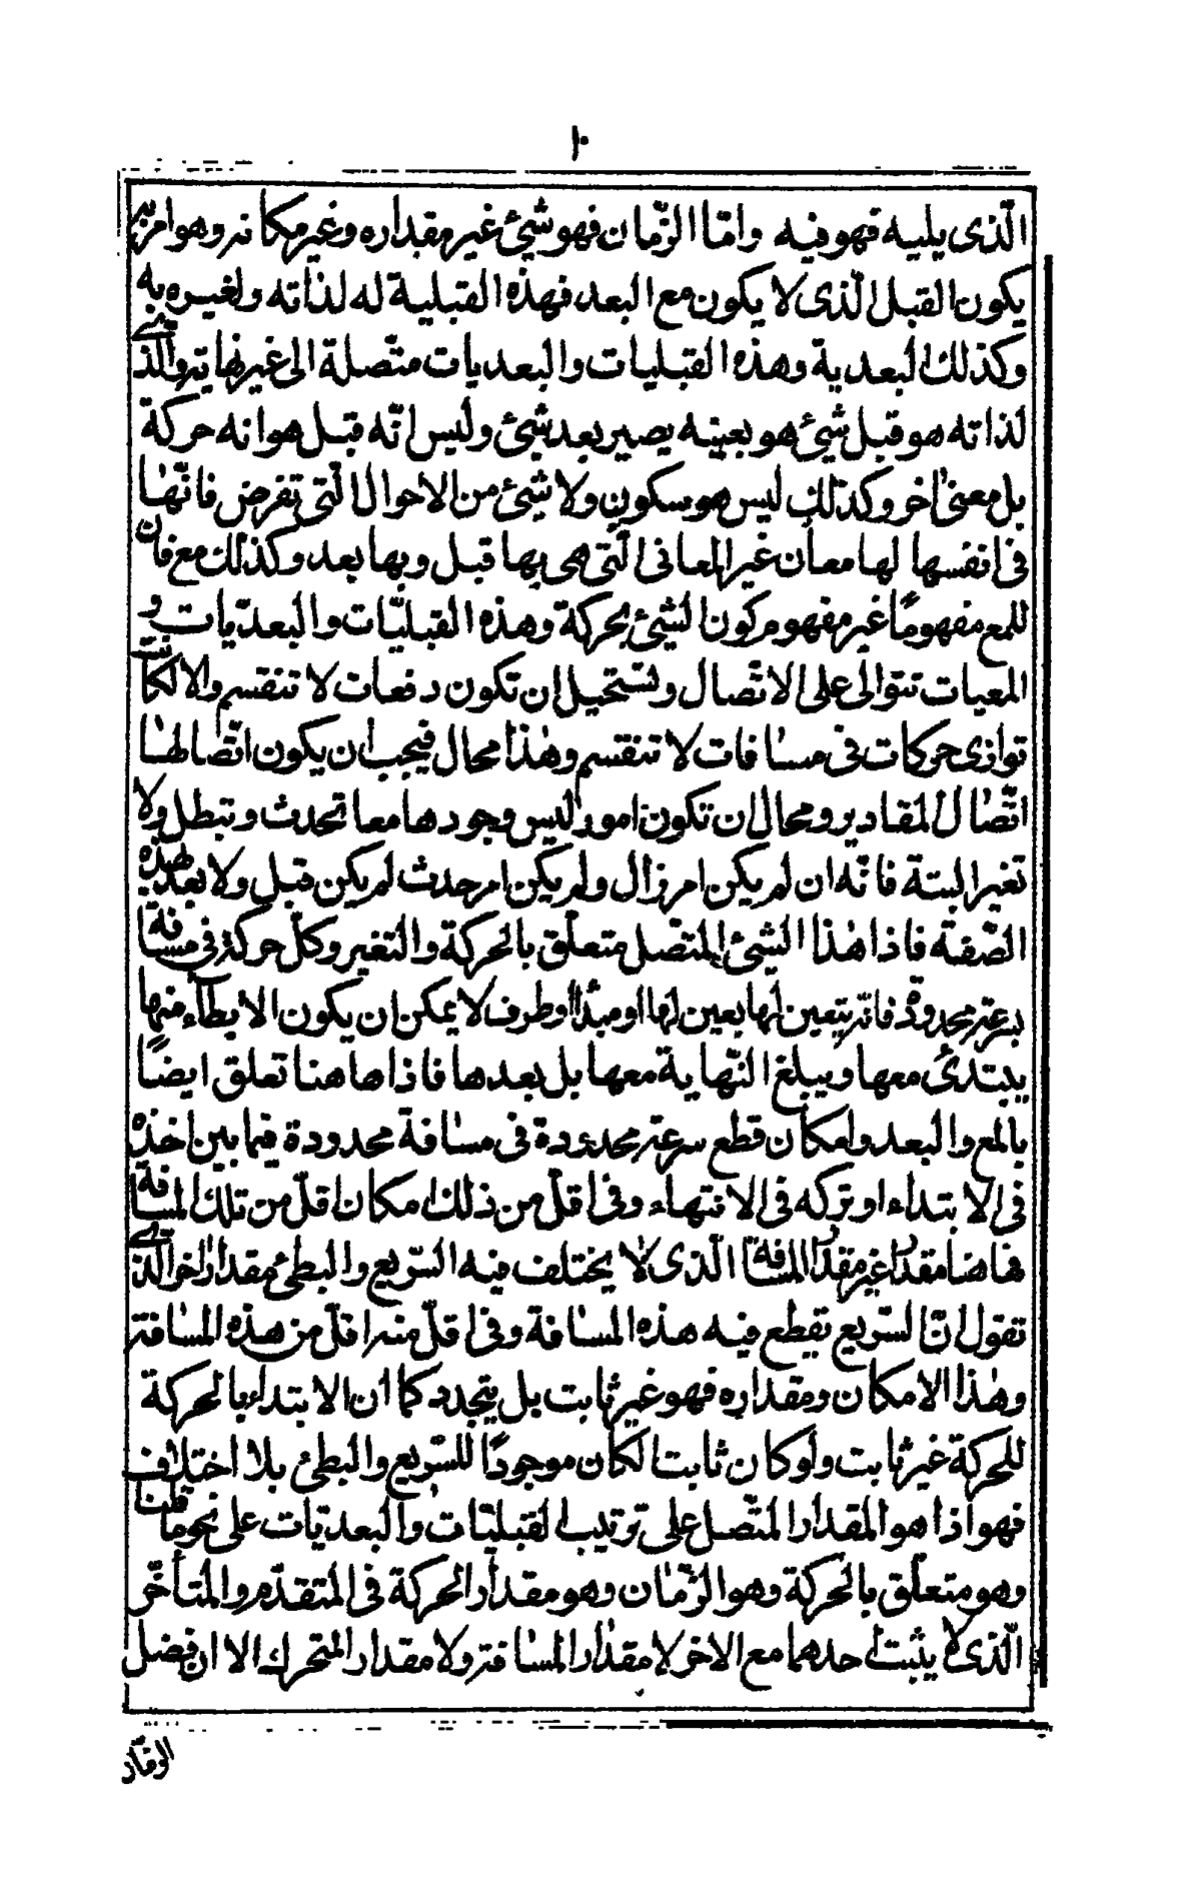 ١٠
الّذى يليه فهو فيه وامّا الزّمان فهو شيئ غير مقداره وغير مكانه وهو امر به
يكون القبل الّذى لا يكون مع البعد فهذه القبلية له لذاته ولغيره به
وكذلك البعدية وهذه القبليات والبعديات متّصلة الى غير نهاية والّذى
لذاته هو قبل شيئ هو بعينه يصير بعد شيئ وليس انّه قبل هو انه حركة
بل معنى اخر وكذلك ليس هو سكون ولا شيئ من الاحوال الّتى تفرض فانّها
فى انفسها لها معان غير المعانى الّتى هى بها قبل وبها بعد وكذلك مع فان
للمع مفهومًا غير مفهوم كون الشيئ بحركة وهذه القبليّات والبعديّات و
المعيات تتوالى على الاتّصال وتستحيل ان تكون دفعات لا تنقسم والا لكانت
توازى حركات فى مسافات لا تنقسم وهذا محال فيجب ان يكون اتّصالها
اتّصال المقادير ومحال ان تكون امور ليس وجودها معا تحدث وتبطل ولا
تغير البتة فانّه ان لم يكن امر زال ولم يكن امر حدث لم يكن قبل ولا بعد بهذه
الصّفة فاذا هذا الشيئ المتّصل متعلّق بالحركة والتغير وكلّ حركة فى مسافة
بسرعة محدودة فانه يتعين لها بعين لها او مبدأ وطرف لا يمكن ان يكون الابطأ منها
يبتدئ معها ويبلغ النّهاية معها بل بعدها فاذا هاهنا تعلق ايضًا
بالمع والبعد وامكان قطع سرعة محدودة فى مسافة محدودة فيما بين اخذه
فى الابتداء او تركه فى الانتهاء وفى اقلّ من ذلك امكان اقلّ من تلك المسافة
فهاهنا مقدار غير مقدار المسافة الّذى لا يختلف فيه السّريع والبطئ مقدار اخر الّذى
تقول انّ السّريع يقطع فيه هذه المسافة وفى اقلّ منه اقلّ من هذه المسافة
وهذا الامكان ومقداره فهو غير ثابت بل يتجدد كما ان الابتداء بالحركة
للحركة غير ثابت ولو كان ثابتا لكان موجودًا للسّريع والبطئ بلا اختلاف
فهو اذا هو المقدار المتّصل على ترتيب القبليّات والبعديّات على نحو ما قلنا
وهو متعلّق بالحركة وهو الزّمان وهو مقدار الحركة فى المتقدّم والمتأخّر
الّذى لا يثبت احدهما مع الاخر لا مقدار المسافة ولا مقدار المتحرك الا ان فصل